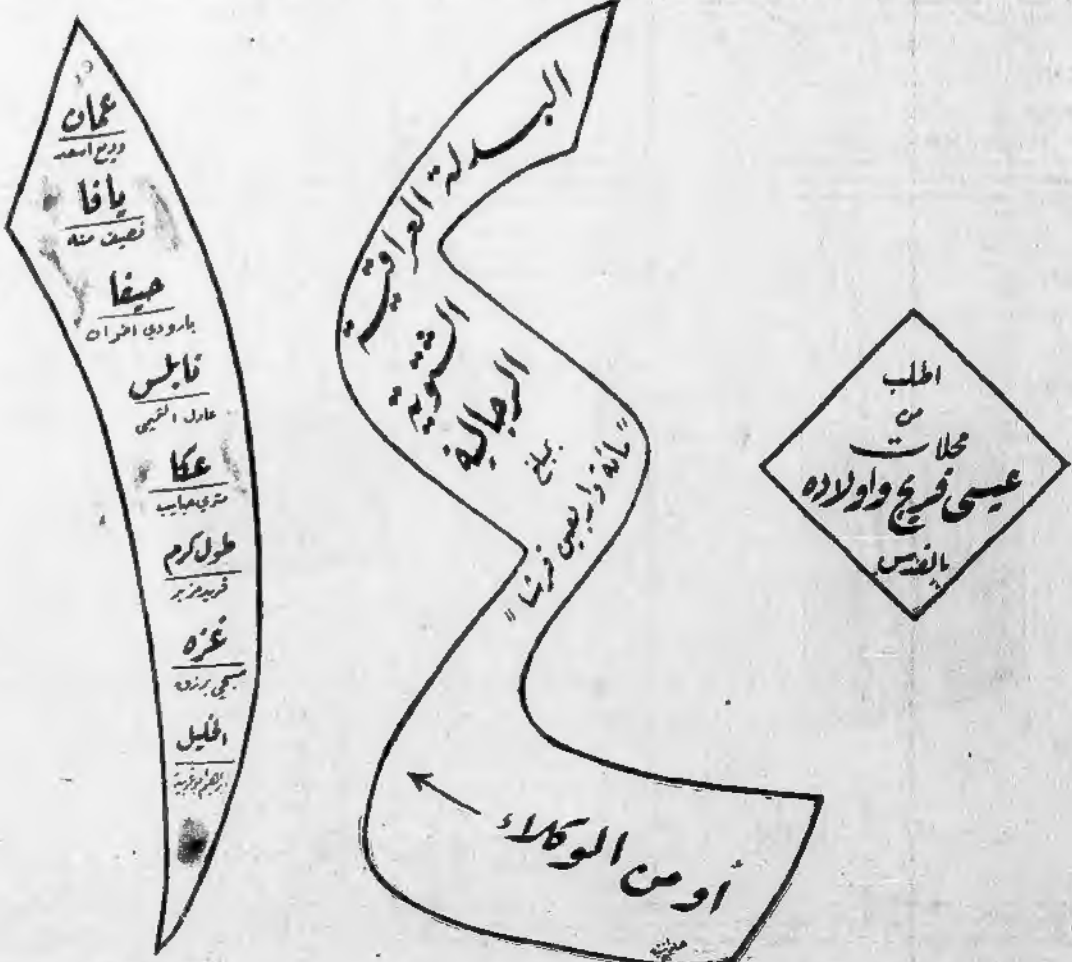 اطلب
من
محلات
عيسى فريج واولاده
بالقدس
البدلة العراقية
الشتوية
الرجالية
بمبلغ
"مائة واربعين قرشا"
أو من الوكلاء
عمان
وديع اسعد
يافا
نصيف منه
حيفا
بارودي اخوان
نابلس
عادل
عكا
متري حبايب
طول كرم
فريد
غزه
الخليل